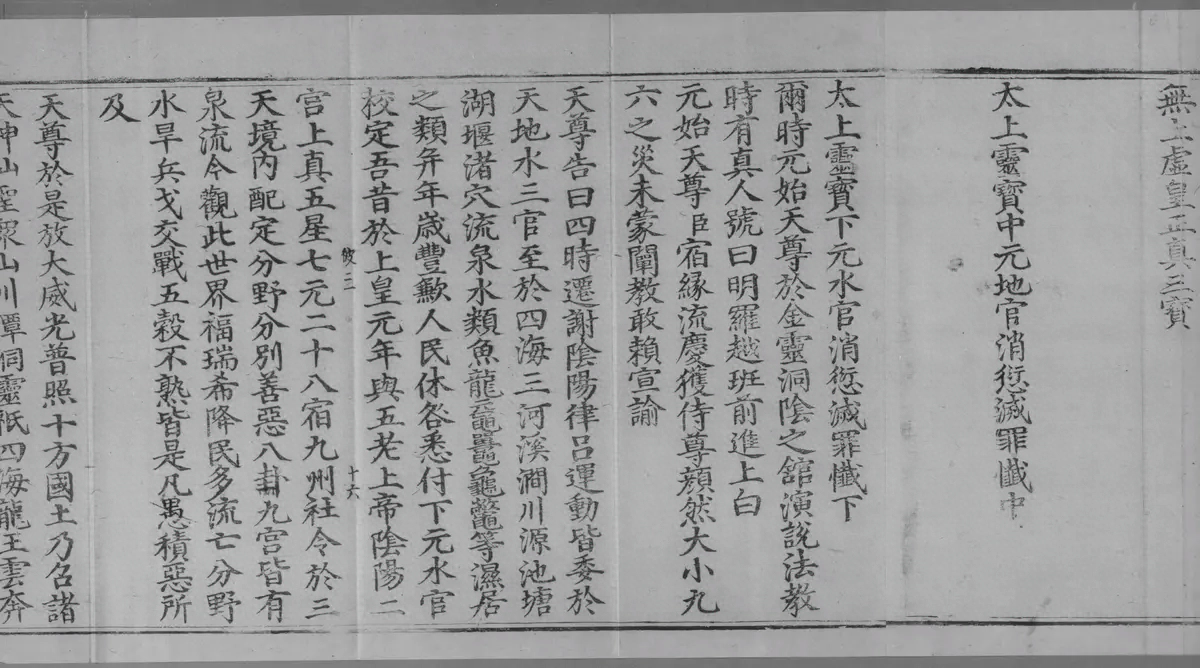 無上虛皇正真三寶
太上靈寶中元地官消愆滅罪懺中
太上靈寶下元水官消愆滅罪懺下
爾時元始天尊於金靈洞陰之舘演說法教
時有真人號曰明羅越班前進上白
元始天尊臣宿緣流慶獲侍尊顔然大小九
六之災未蒙闡教敢賴宣諭
天尊告曰四時遷謝陰陽律吕運動皆委於
天地水三官至於四海三河溪澗川源池塘
湖堰渚穴流泉水類魚龍黿鼉龜鼈等濕居
之類并年歲豐歉人民休咎悉付下元水官
校定吾昔於上皇元年與五老上帝陰陽二
敂三 十六
宫上真五星七元二十八宿九州社令於三
天境内配定分野分别善惡八卦九宫皆有
泉流今觀此世界福瑞希降民多流亡分野
水旱兵戈交戰五穀不熟皆是凡愚積惡所
及
天尊於是放大威光普照十方國土乃召諸
天神仙聖眾山川潭洞靈祇四海龍王雲奔